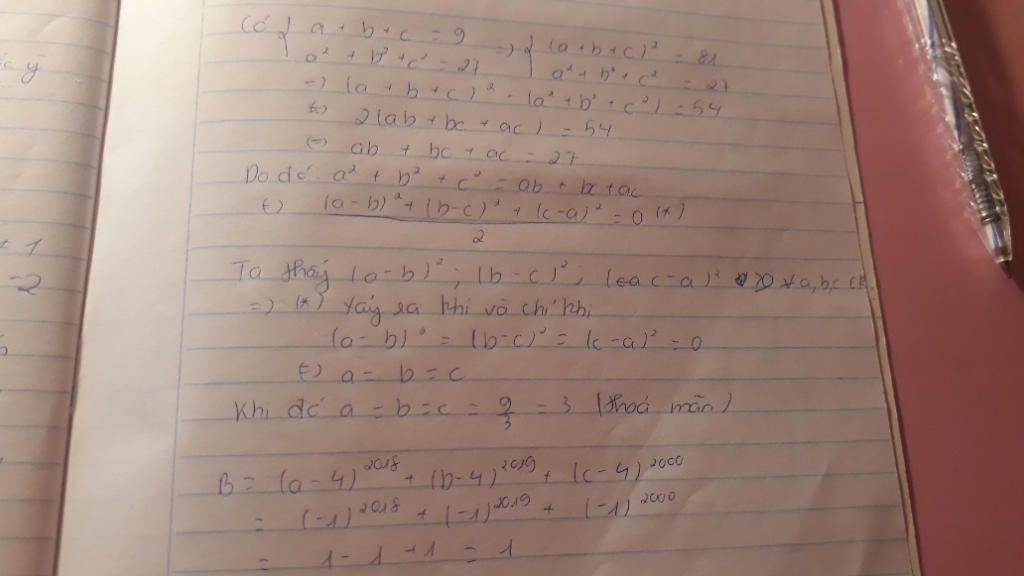 ác ý
± 1
-2
Có { a + b + c = 9 => { (a+b+c)² = 81
a² + b² + c² = 27 a² + b² + c² = 27
=> (a + b + c)² - (a² + b² + c²) = 54
(=) 2(ab + bc + ac) = 54
(=) ab + bc + ac = 27
Do đó a² + b² + c² = ab + bc + ac
(=) (a-b)² + (b-c)² + (c-a)² = 0 (*)
2
Ta thấy (a-b)² ; (b-c)² ; (c-a)² ≥0 ∀ a,b,c ∈ R
=> (*) xảy ra khi và chỉ khi
(a - b)² = (b-c)² = (c-a)² = 0
(=) a = b = c
Khi đó a = b = c = 9/3 = 3 (thoả mãn)
B = (a-4)²⁰¹⁸ + (b-4)²⁰¹⁹ + (c-4)²⁰⁰⁰
= (-1)²⁰¹⁸ + (-1)²⁰¹⁹ + (-1)²⁰⁰⁰
= 1 - 1 + 1 = 1